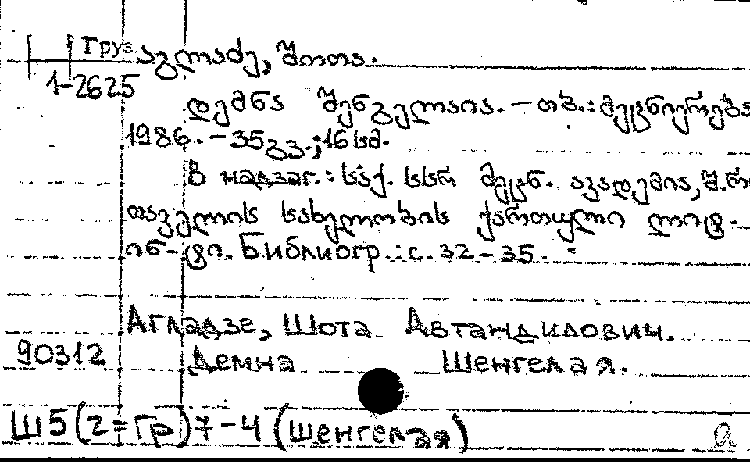 Груз აგლაძე, შოთა.
1-2625
დემნა შენგელაია. - თბ.: მეცნიერება
1986. - 35გვ.; 16 სმ.
В надзаг.: საქ. სსრ მეცნ. აკადემია, შ. რუ
თაველის სახელობის ქართული ლიტ.
ინ-ტი. Библиогр.: с. 32-35.
Агладзе, Шота Автандилович.
90312 Демна Шенгелая.
Ш5(2=Гр)7-4(Шенгелая) а